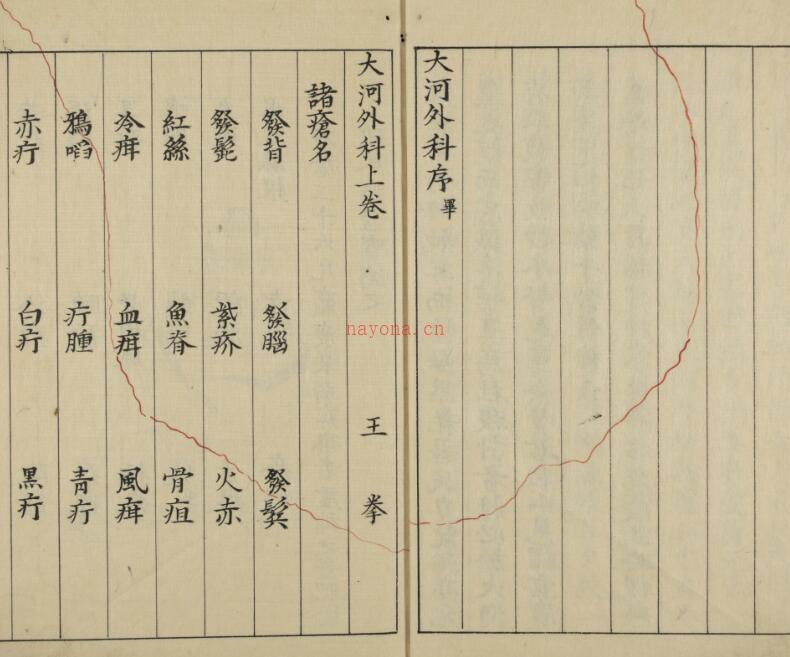 大河外科序 畢
大河外科上卷 王拳
諸瘡名
發背 發腦 發鬂
發髭 紫疥 火赤
紅絲 魚脊 骨疽
冷疳 血疳 風疳
鴉啗 疔腫 青疔
赤疔 白疔 黑疔
nayona.cn